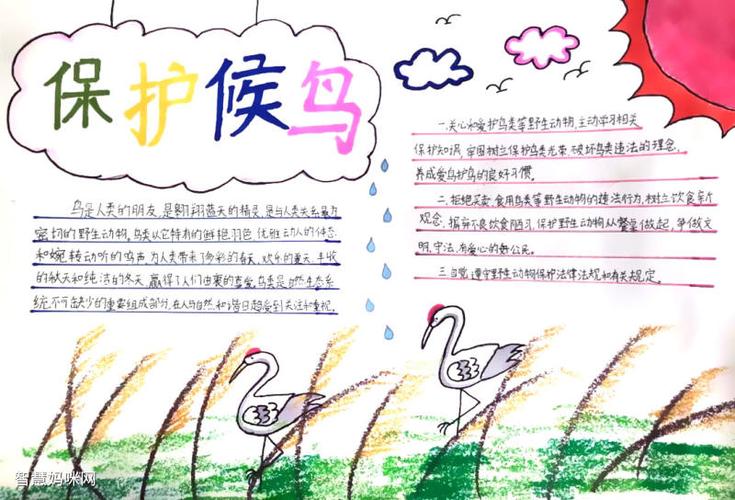 保护候鸟
鸟是人类的朋友,是翱翔蓝天的精灵,是与人类关系最为
密切的野生动物。鸟类以它特有的鲜艳羽色、优雅动人的体态
和婉转动听的鸣声,为人类带来了多彩的春天、欢乐的夏天、丰收
的秋天和纯洁的冬天,赢得了人们由衷的喜爱,鸟类是自然生态系
统不可缺少的重要组成部分,在人与自然和谐日趋受到关注和重视。
一、关心和爱护鸟类等野生动物,主动学习相关
保护知识,牢固树立保护鸟类光荣、破坏鸟类违法的理念,
养成爱鸟护鸟的良好习惯。
二、拒绝买卖、食用鸟类等野生动物的违法行为,树立饮食新
观念,摒弃不良饮食陋习,保护野生动物从餐桌做起,争做文
明、守法、有爱心的好公民。
三、自觉遵守野生动物保护法律法规和有关规定。
智慧妈咪网